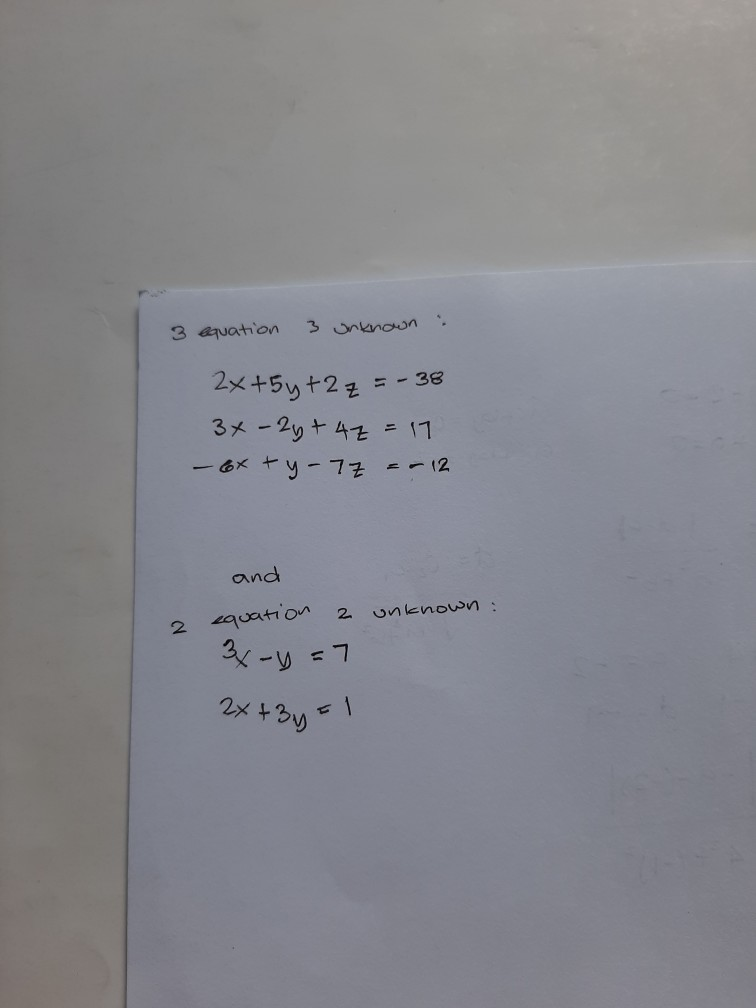 3 equation 3 unknown :
2x+5y+2z = -38
3x - 2y + 4z = 17
-6x + y - 7z = -12
and
2 equation 2 unknown :
3x - y = 7
2x + 3y = 1